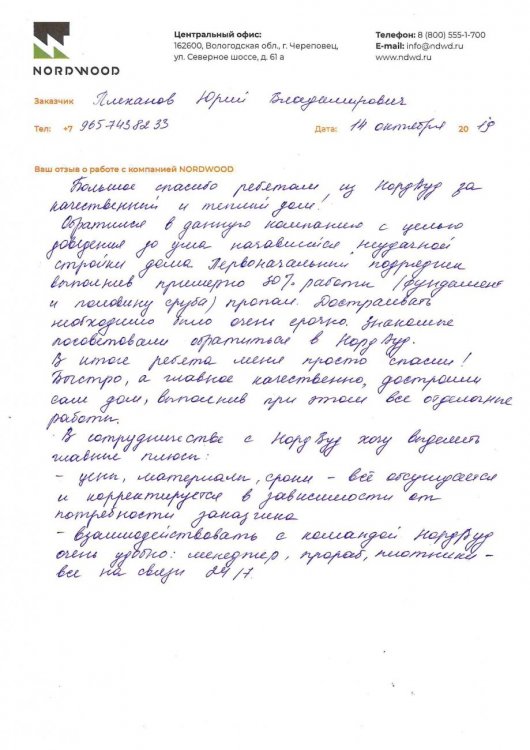 NORDWOOD
Центральный офис:
162600, Вологодская обл., г. Череповец,
ул. Северное шоссе, д. 61 а
Телефон: 8 (800) 555-1-700
E-mail: info@ndwd.ru
www.ndwd.ru
Заказчик Плеханов Юрий Владимирович
Тел: +7 965-743 82 33 Дата: 14 октября 20 19
Ваш отзыв о работе с компанией NORDWOOD
Большое спасибо ребятам из НордВуд за
качественный и теплый дом!
Обратился в данную компанию с целью
доведения до ума начавшейся неудачной
стройки дома. Первоначальный подрядчик
выполнив примерно 30% работы (фундамент
и половину сруба) пропал. Достраивать
необходимо было очень срочно. Знакомые
посоветовали обратиться в НордВуд.
В итоге ребята меня просто спасли!
Быстро, а главное качественно, достроили
сам дом, выполнив при этом все отделочные
работы.
В сотрудничестве с НордВуд хочу выделить
главные плюсы:
- цены, материалы, сроки - всё обсуждается
и корректируется в зависимости от
потребности заказчика
- взаимодействовать с командой НордВуд
очень удобно: менеджер, прораб, плотники -
все на связи 24/7.